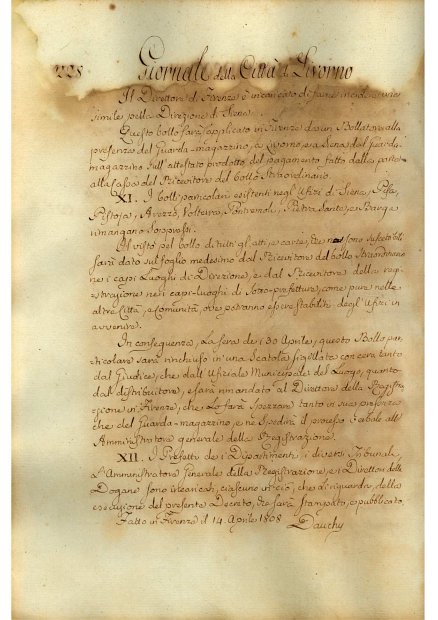 228 Giornale della Città di Livorno
Il Direttore di Firenze è incaricato di farne incidere uno
simile per la Direzione di Siena.
Questo bollo sarà applicato in Firenze da un Bollatore alla
presenza del Guarda-magazzino, a Livorno, e a Siena dal Guarda-
magazzino sull'attestato prodotto del pagamento fatto dalla parte
alla Cassa del Ricevitore del bollo straordinario.
XI. I bolli particolari esistenti negl'Ufizi di Siena, Pisa,
Pistoja, Arezzo, Volterra, Pontremoli, Pietra Santa, e Barga
rimangano soppressi.
Il visto pel bollo di tutti gl'atti, e carte, che ne sono suscettibili
sarà dato sul foglio medesimo dal Ricevitore del bollo straordinario
ne i capi Luoghi di Direzione, e dal Ricevitore della regi-
strazione ne i capi-luoghi di Sotto-prefetture, come pure nelle
altre Città, e Comunità, ove potranno esser stabiliti degl'Ufizi in
avvenire.
In conseguenza, la sera de i 30 Aprile, questo Bollo par-
ticolare sarà rinchiuso in una Scatola sigillata con cera tanto
dal Giudice, che dall'Ufiziale Municipale del Luogo, quanto
dal distributore, e sarà rimandato al Direttore della Registra-
zione in Firenze, che Lo farà spezzare tanto in sua presenza
che del Guarda-magazzino, e ne spedirà il processo verbale all'
Amministratore generale della Registrazione.
XII. I Prefetti de i Dipartimenti, i diversi Tribunali,
L'Amministratore Generale della Registrazione, e i Direttori delle
Dogane sono incaricati, ciascuno in ciò, che di riguarda, della
esecuzione del presente Decreto, che sarà stampato, e pubblicato.
Fatto in Firenze il 14 Aprile 1808 Dauchy